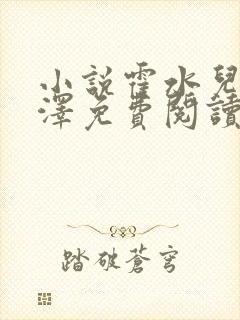 小說霍水兒
澤免費閱讀
踏破蒼穹